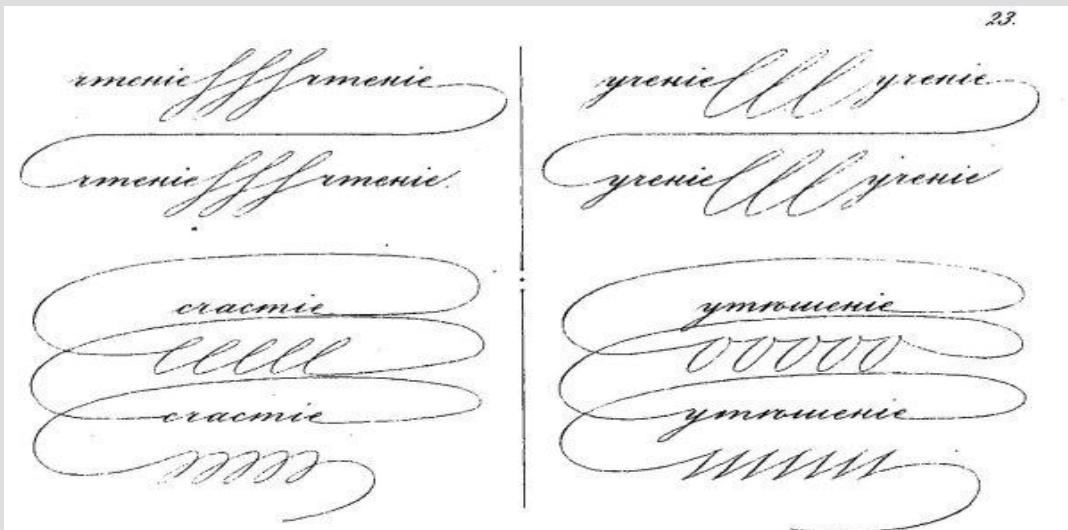 23.
чтеніе чтеніе
чтеніе чтеніе.
ученіе ученіе
ученіе ученіе
счастіе
счастіе
утѣшеніе
утѣшеніе